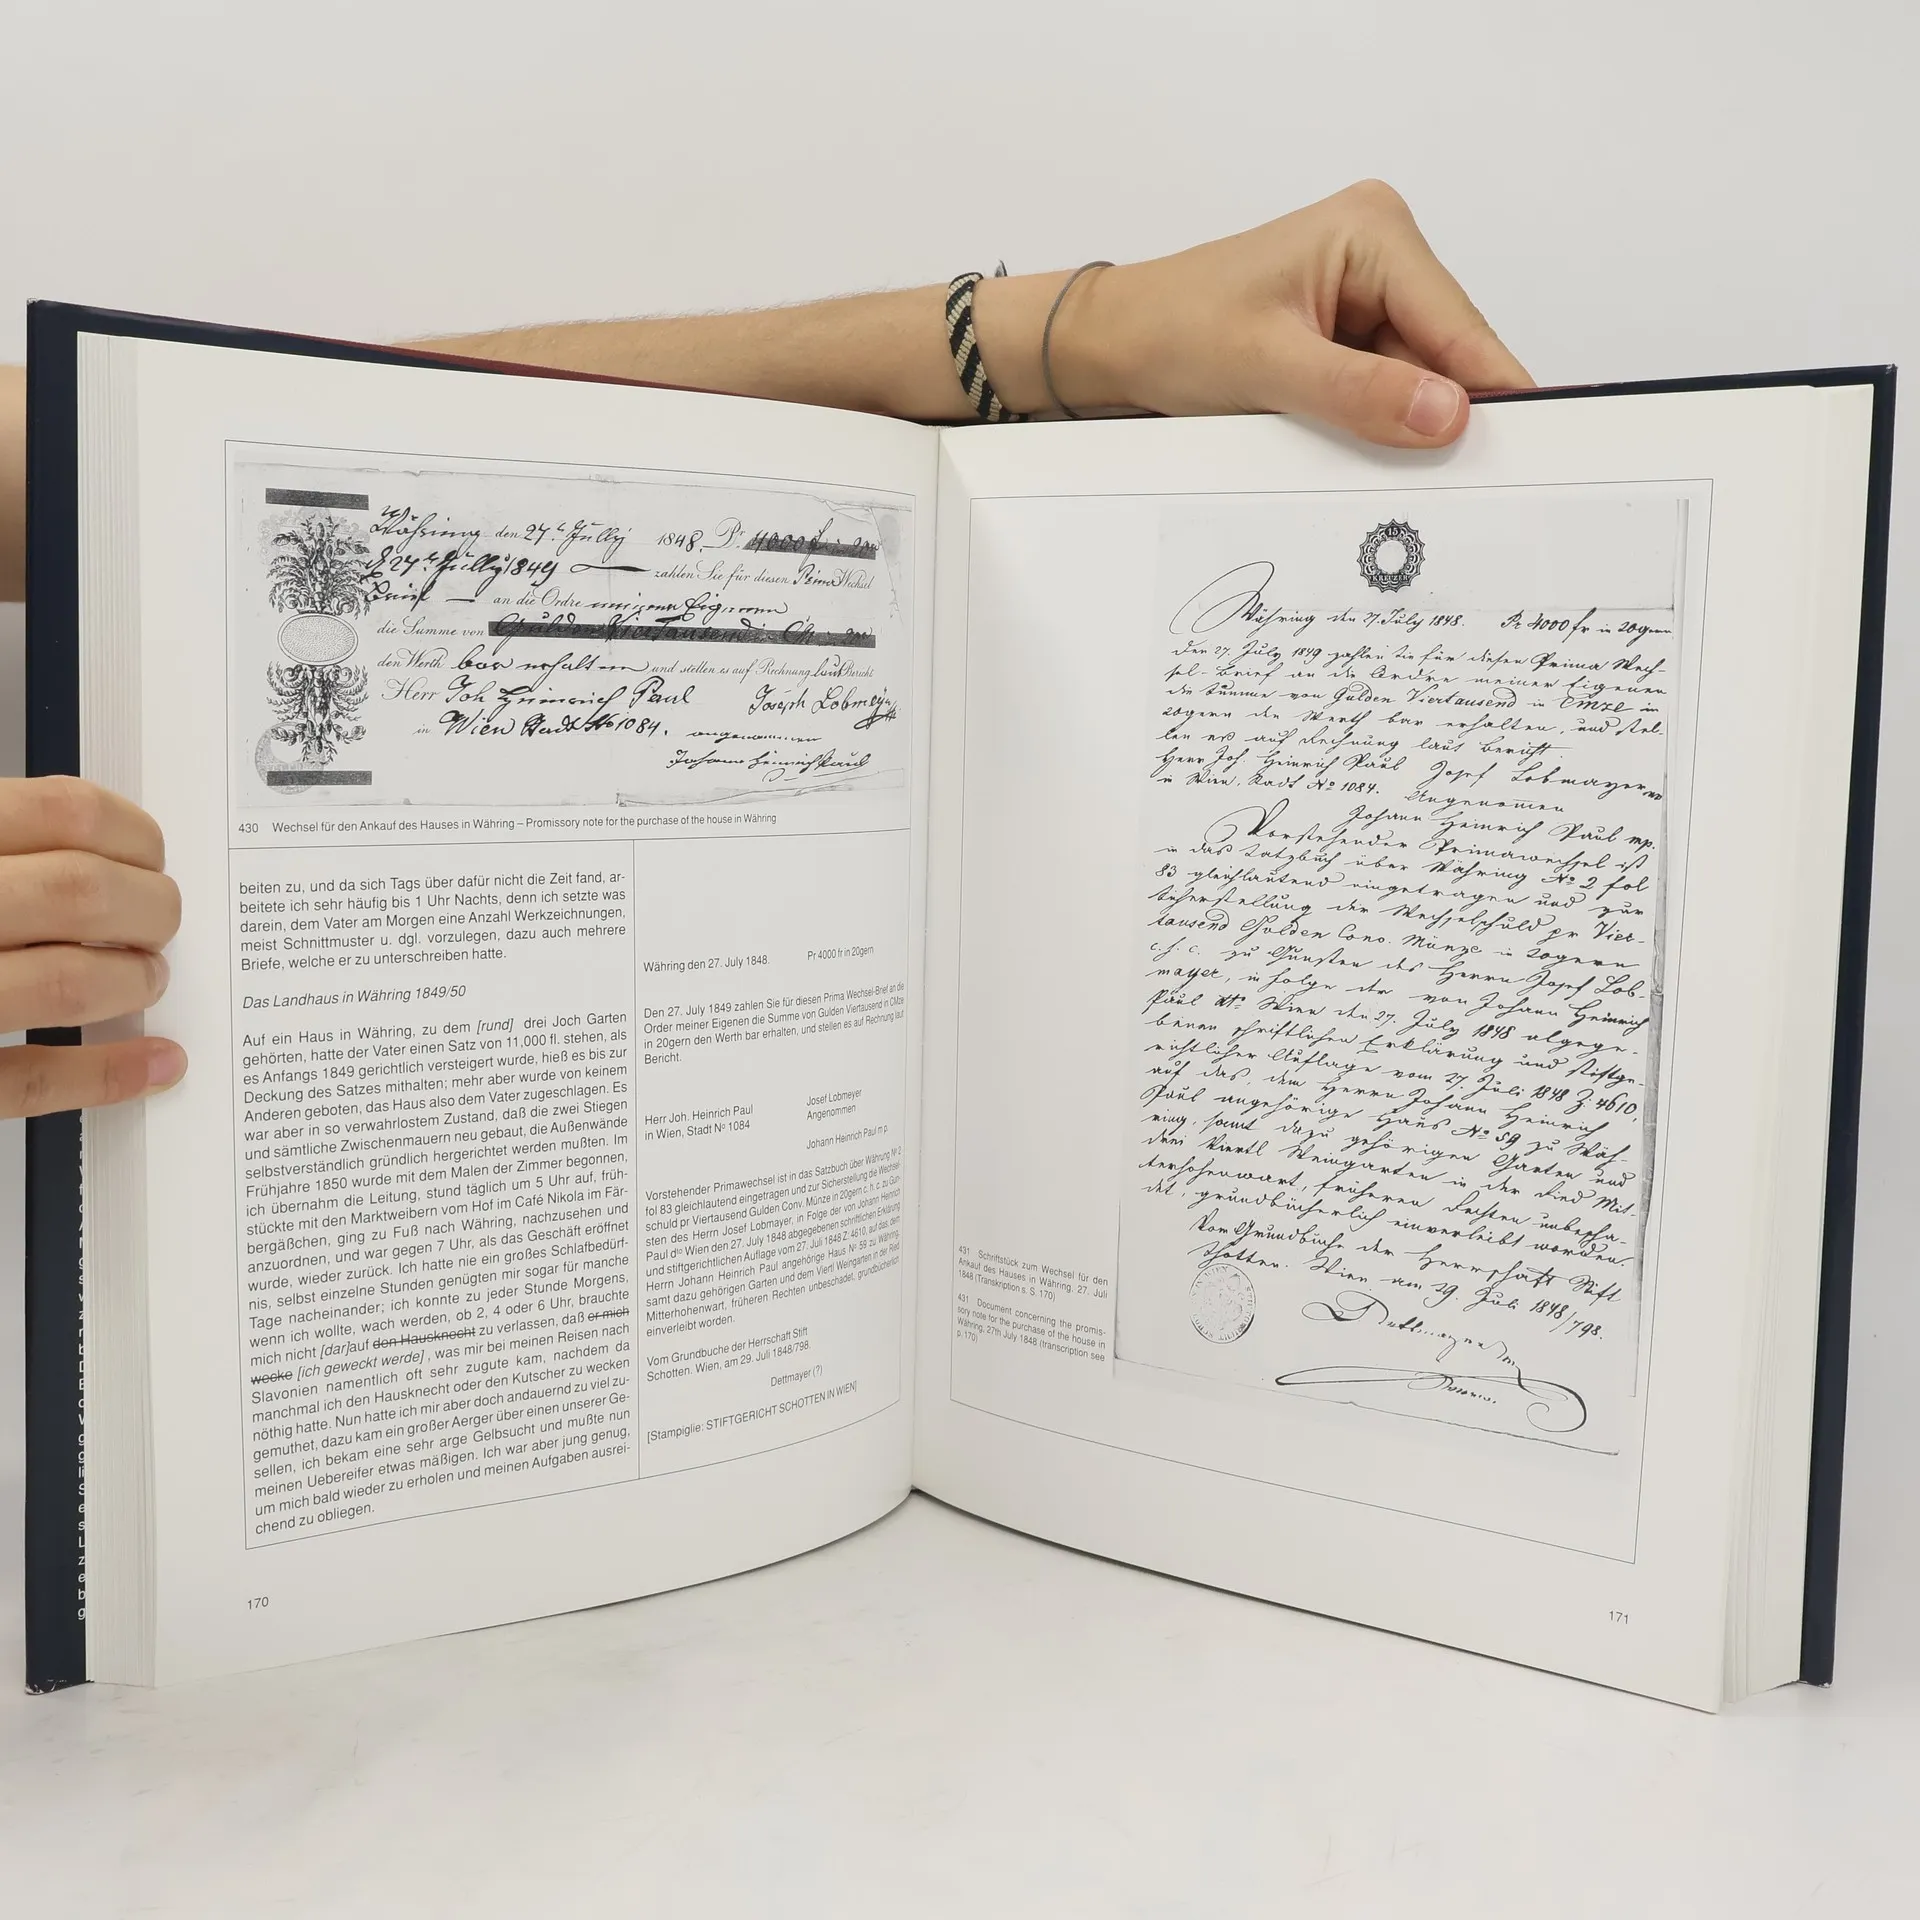 Währing den 27. July 1848. Pr. 4000 f
d 27. July 1849 zahlen Sie für diesen Prima Wechsel
Brief an die Ordre meiner Eigenen
die Summe von Gulden Viertausend in
den Werth bar erhalten und stellen es auf Rechnung laut Bericht
Herr Joh Heinrich Paul Joseph Lobmeyr
in Wien Stadt No 1084. angenommen
Johann Heinrich Paul
430 Wechsel für den Ankauf des Hauses in Währing – Promissory note for the purchase of the house in Währing
beiten zu, und da sich Tags über dafür nicht die Zeit fand, ar-
beitete ich sehr häufig bis 1 Uhr Nachts, denn ich setzte was
darein, dem Vater am Morgen eine Anzahl Werkzeichnungen,
meist Schnittmuster u. dgl. vorzulegen, dazu auch mehrere
Briefe, welche er zu unterschreiben hatte.
Das Landhaus in Währing 1849/50
Auf ein Haus in Währing, zu dem [rund] drei Joch Garten
gehörten, hatte der Vater einen Satz von 11,000 fl. stehen, als
es Anfangs 1849 gerichtlich versteigert wurde, hieß es bis zur
Deckung des Satzes mithalten; mehr aber wurde von keinem
Anderen geboten, das Haus also dem Vater zugeschlagen. Es
war aber in so verwahrlostem Zustand, daß die zwei Stiegen
und sämtliche Zwischenmauern neu gebaut, die Außenwände
selbstverständlich gründlich hergerichtet werden mußten. Im
Frühjahre 1850 wurde mit dem Malen der Zimmer begonnen,
ich übernahm die Leitung, stund täglich um 5 Uhr auf, früh-
stückte mit den Marktweibern vom Hof im Café Nikola im Fär-
bergäßchen, ging zu Fuß nach Währing, nachzusehen und
anzuordnen, und war gegen 7 Uhr, als das Geschäft eröffnet
wurde, wieder zurück. Ich hatte nie ein großes Schlafbedürf-
nis, selbst einzelne Stunden genügten mir sogar für manche
Tage nacheinander; ich konnte zu jeder Stunde Morgens,
wenn ich wollte, wach werden, ob 2, 4 oder 6 Uhr, brauchte
mich nicht [dar]auf den Hausknecht zu verlassen, daß er mich
wecke [ich geweckt werde], was mir bei meinen Reisen nach
Slavonien namentlich oft sehr zugute kam, nachdem da
manchmal ich den Hausknecht oder den Kutscher zu wecken
nöthig hatte. Nun hatte ich mir aber doch andauernd zu viel zu-
gemuthet, dazu kam ein großer Aerger über einen unserer Ge-
sellen, ich bekam eine sehr arge Gelbsucht und mußte nun
meinen Uebereifer etwas mäßigen. Ich war aber jung genug,
um mich bald wieder zu erholen und meinen Aufgaben ausrei-
chend zu obliegen.
170
Währing den 27. July 1848. Pr 4000 fr in 20gern
Den 27. July 1849 zahlen Sie für diesen Prima Wechsel-Brief an die
Order meiner Eigenen die Summe von Gulden Viertausend in CMze
in 20gern den Werth bar erhalten, und stellen es auf Rechnung laut
Bericht.
Josef Lobmeyer
Herr Joh. Heinrich Paul Angenommen
in Wien, Stadt No 1084
Johann Heinrich Paul m.p.
Vorstehender Primawechsel ist in das Satzbuch über Währung No 2
fol 83 gleichlautend eingetragen und zur Sicherstellung die Wechsel-
schuld pr Viertausend Gulden Conv. Münze in 20gern c. h. c. zu Gun-
sten des Herrn Josef Lobmayer, in Folge der von Johann Heinrich
Paul dto Wien den 27. July 1848 abgegebenen schriftlichen Erklärung
und stiftgerichtlichen Auflage vom 27. Juli 1848 Z: 4610, auf das dem
Herrn Johann Heinrich Paul angehörige Haus No 59 zu Währing,
samt dazu gehörigen Garten und dem Viertl Weingarten in der Ried
Mitterhohenwart, früheren Rechten unbeschadet, grundbücherlich
einverleibt worden.
Vom Grundbuche der Herrschaft Stift
Schotten. Wien, am 29. Juli 1848/798.
Dettmayer (?)
[Stampiglie: STIFTGERICHT SCHOTTEN IN WIEN]
15
KREUZER
Währing den 27. July 1848. Pr 4000 fr in 20gern
Den 27. July 1849 zahlen Sie für diesen Prima Wech-
sel-Brief an die Ordre meiner Eigenen
die Summe von Gulden Viertausend in CMze in
20gern den Werth bar erhalten, und stel-
len es auf Rechnung laut Bericht
Herr Joh. Heinrich Paul Josef Lobmayer
in Wien, Stadt No 1084. Angenommen
Johann Heinrich Paul mp.
Vorstehender Primawechsel ist
in das Satzbuch über Währing No 2 fol
83 gleichlautend eingetragen und zur
Sicherstellung der Wechselschuld pr Vier-
tausend Gulden Conv. Münze in 20gern
c. s. c. zu Gunsten des Herrn Josef Lob-
mayer, in Folge der von Johann Heinrich
Paul dto Wien den 27. July 1848 abgege-
benen schriftlichen Erklärung und stiftge-
richtlicher Auflage vom 27. Juli 1848 Z: 4610,
auf das, dem Herrn Johann Heinrich
Paul angehörige Haus No 59 zu Wäh-
ring, samt dazu gehörigen Garten und
drei Viertl Weingarten in der Ried Mit-
terhohenwart, früheren Rechten unbescha-
det, grundbücherlich einverleibt worden.
Vom Grundbuche der Herrschaft Stift
Schotten. Wien am 29. Juli 1848/798.
431 Schriftstück zum Wechsel für den
Ankauf des Hauses in Währing, 27. Juli
1848 (Transkription s. S. 170)
431 Document concerning the promis-
sory note for the purchase of the house in
Währing, 27th July 1848 (transcription see
p. 170)
171